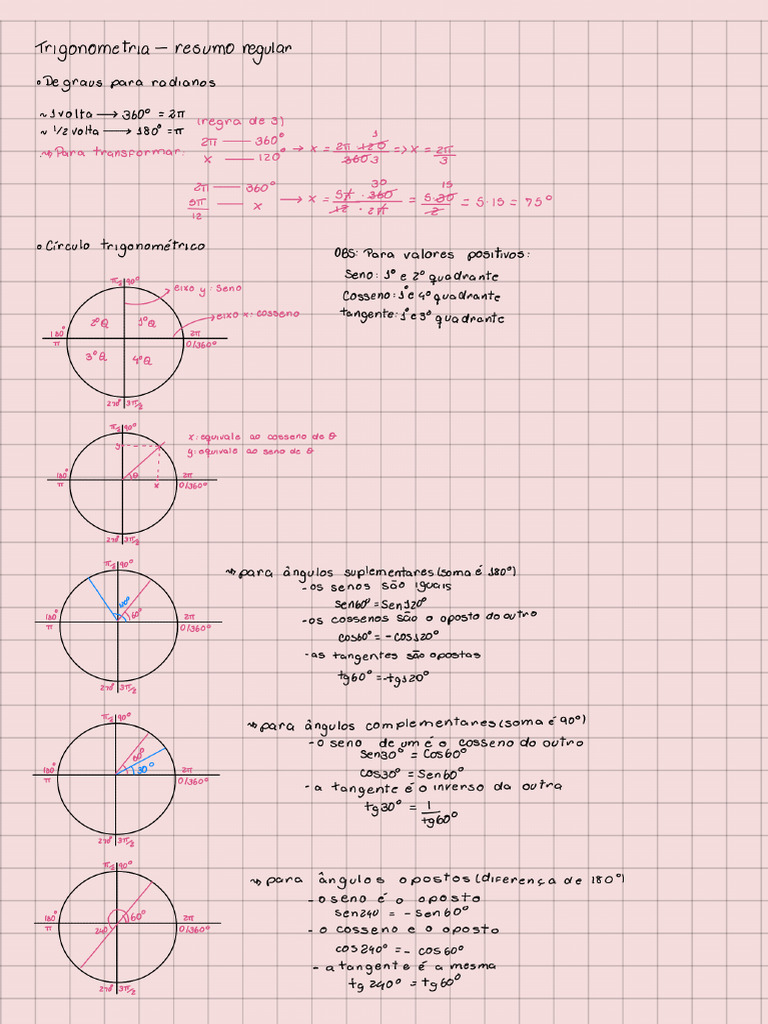 Trigonometria — resumo regular
• De graus para radianos
~ 1 volta → 360° = 2π
~ 1/2 volta → 180° = π
~> Para transformar:
(regra de 3)
2π — 360°
x — 120°
→ x = 2π · 120 / 360 3 => x = 2π / 3
1
2π — 360°
5π/12 — x
→ x = 5π · 360 / 12 · 2π = 5 · 30 / 2 = 5 · 15 = 75°
30
15
• Círculo trigonométrico
OBS: Para valores positivos:
Seno: 1° e 2° quadrante
Cosseno: 1° e 4° quadrante
tangente: 1° e 3° quadrante
π/2 90°
eixo y: seno
eixo x: cosseno
2°Q 1°Q
180° π
2π 0/360°
3°Q 4°Q
270° 3π/2
π/2 90°
x: equivale ao cosseno de θ
y: equivale ao seno de θ
y
θ
x
180° π
2π 0/360°
270° 3π/2
~> para ângulos suplementares (soma é 180°)
- os senos são iguais
sen60° = sen120°
- os cossenos são o oposto do outro
cos60° = - cos120°
- as tangentes são opostas
tg60° = -tg120°
π/2 90°
120°
60°
180° π
2π 0/360°
270° 3π/2
~> para ângulos complementares (soma é 90°)
- o seno de um é o cosseno do outro
sen30° = cos60°
cos30° = sen60°
- a tangente é o inverso da outra
tg30° = 1 / tg60°
π/2 90°
60°
30°
180° π
2π 0/360°
270° 3π/2
~> para ângulos opostos (diferença de 180°)
- o seno é o oposto
sen240 = - sen60°
- o cosseno e o oposto
cos240° = - cos60°
- a tangente é a mesma
tg240° = tg60°
π/2 90°
60°
240°
180° π
2π 0/360°
270° 3π/2